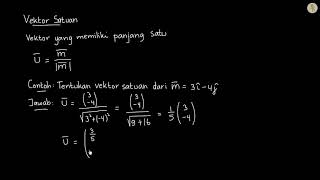 Vektor Satuan
Vektor yang memiliki panjang satu
U̅ = m̅ / |m̅|
Contoh: Tentukan vektor satuan dari m̅ = 3î - 4ĵ
Jawab: U̅ = (3 -4) / √(3² + (-4)²) = (3 -4) / √(9 + 16) = 1/5 (3 -4)
U̅ = ( 3/5